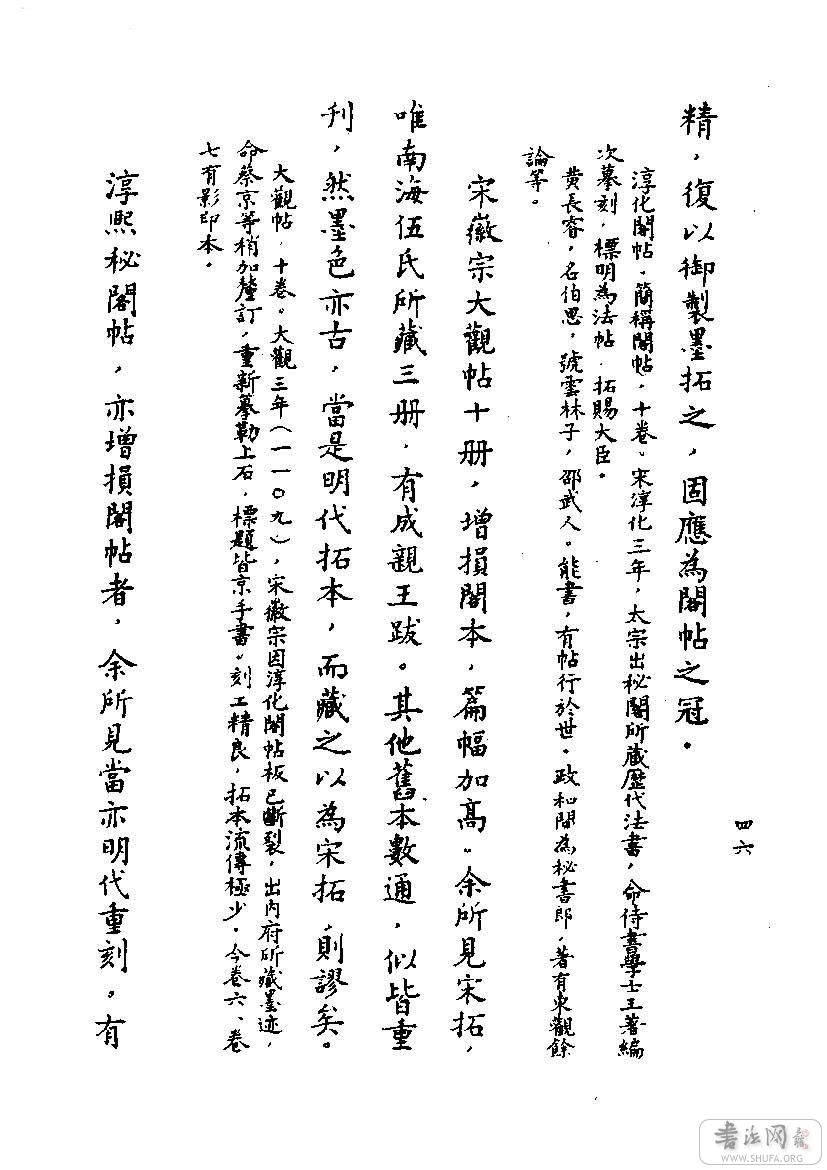 精，復以御製墨拓之，固應為閣帖之冠。
淳化閣帖，簡稱閣帖，十卷。宋淳化三年，太宗出秘閣所藏歷代法書，命侍書學士王著編
次摹刻，標明為法帖，拓賜大臣。
黄長睿，名伯思，號雲林子，邵武人。能書，有帖行於世。政和間為秘書郎，著有東觀餘
論等。
宋徽宗大觀帖十册，增損閣本，篇幅加高。余所見宋拓，
唯南海伍氏所藏三册，有成親王跋。其他舊本數通，似皆重
刋，然墨色亦古，當是明代拓本，而藏之以為宋拓，則謬矣。
大觀帖，十卷。大觀三年（一一〇九），宋徽宗因淳化閣帖板已斷裂，出内府所藏墨迹，
命蔡京等稍加釐訂，重新摹勒上石，標題皆京手書。刻工精良，拓本流傳極少。今卷六、卷
七有影印本。
淳熙秘閣帖，亦增損閣帖者，余所見當亦明代重刻，有
四六
書法网
WWW.SHUFA.ORG